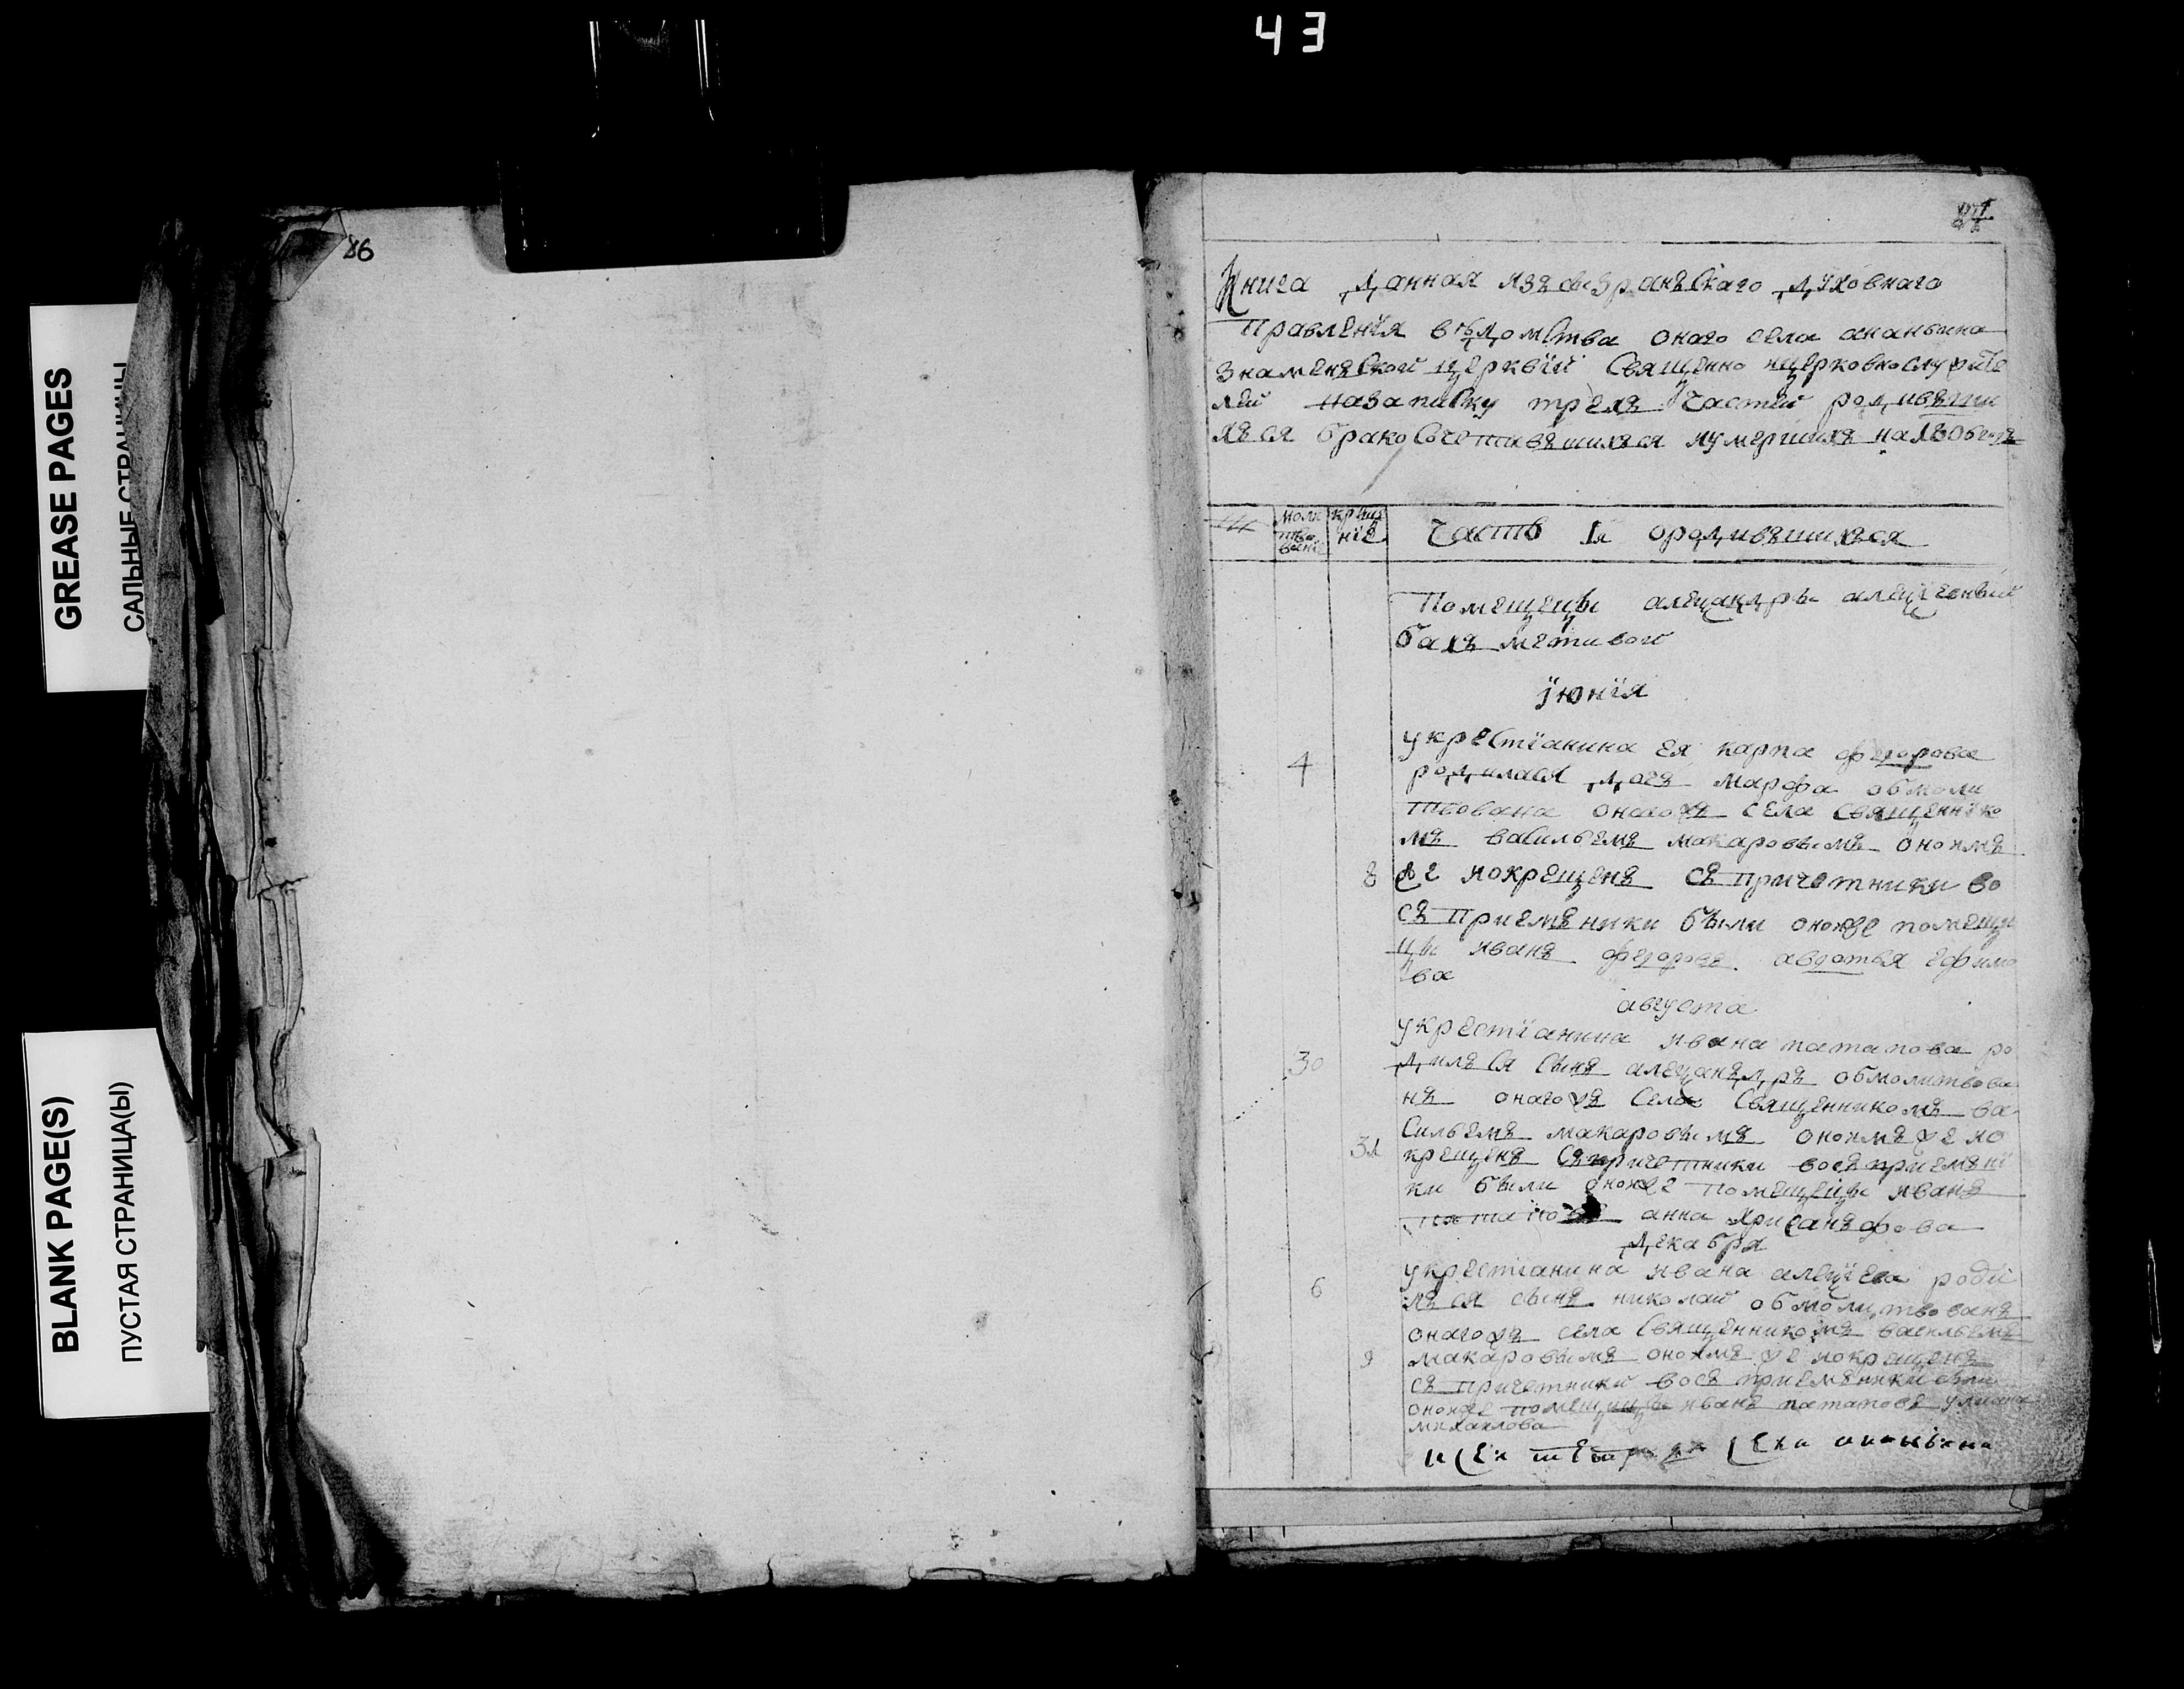 43
86
87
GREASE PAGES
САЛЬНЫЕ СТРАНИЦЫ
BLANK PAGE(S)
ПУСТАЯ СТРАНИЦА(Ы)
Книга данная изъ сызранъскаго духовнаго
правленїя вѣдомства онаго села ананьина
знаменъской церквїи священно ицерковнослужите
лей назаписку трехъ частей родивъши
хъся бракосочетавъшихъся иумершихъ
моли
тво
ванїе
креще
нїе
Часть 1я ородившихъся
Помещецы алеѯандры алеѯѣевны
бахъметивой
їюнїя
4
укрестїанина ея карпа федорова
родилася дочь марфа обмоли
твована онагожъ села священнїко
мъ васильемъ макаровымъ ононмъ
8
же покрещенъ съ причетники во
съприемъники были оножде помещи
цы иванъ федоровъ авдотья ефимо
ва
августа
укрестїанина ивана патапова ро
30
дилъся сынъ алеѯанъдръ обмолитвова
нъ онагожъ села священникомъ ва
сильемъ макаровымъ онοимъ же по
31
крещенъ съпричетники восъприемънї
ки были оножде помещецы иванъ
патаповъ анна хрисанъфова
декабря
укрестїанина ивана алеѯѣева роди
6
лъся сынъ николай обмолитвованъ
онагожъ села священникомъ васильемъ
9
макаровымъ оноимъ же покрещенъ
съ причетники восъприемъники были
оножде помещицы иванъ патаповъ улиана
михаилова
села ананьина